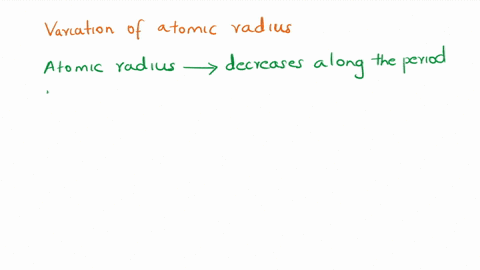 Variation of atomic radius
Atomic radius → decreases along the period